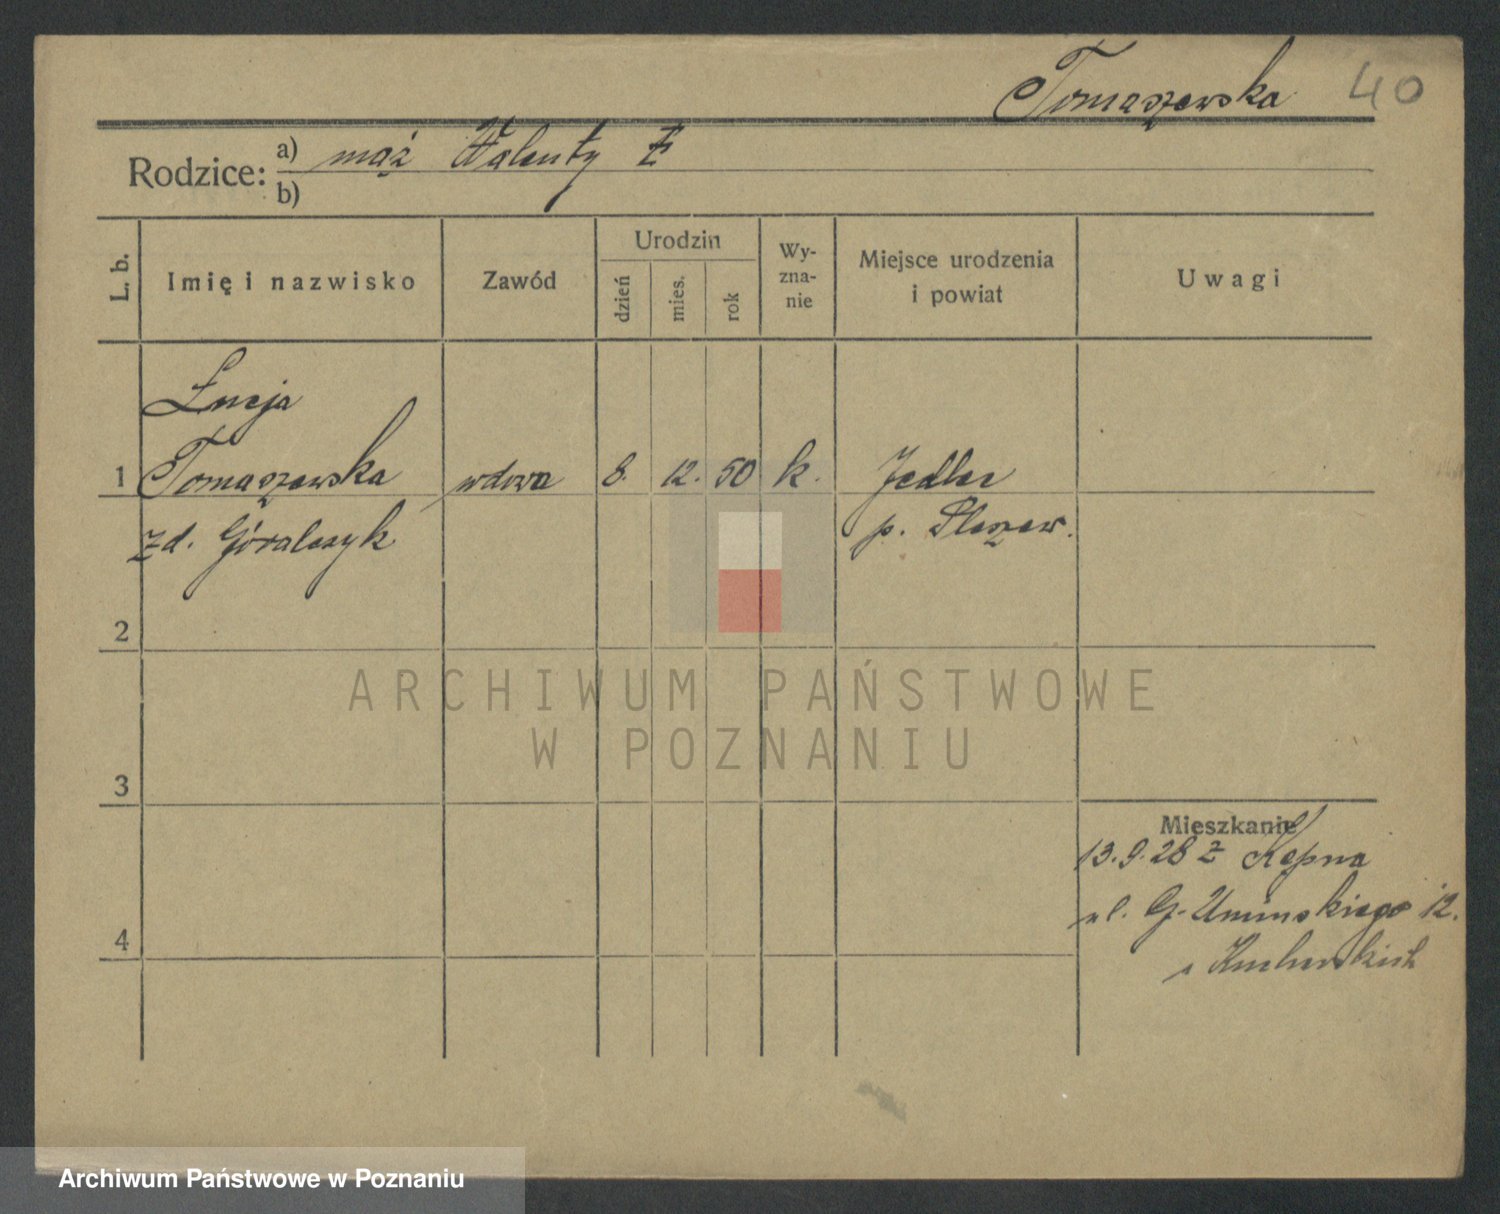 Tomaszewska 40
Rodzice:
a) mąż Walenty
b)
L. b.
Imię i nazwisko
Zawód
Urodzin
dzień
mies.
rok
Wy-
zna-
nie
Miejsce urodzenia
i powiat
Uwagi
Łucja
1 Tomaszewska wdowa 8. 12. 50 k. Jedlec
zd. Góralczyk p. Pleszew.
2
3
4
Mieszkanie
13.9.28 z Kępna
ul. G. Umińskiego 12.
ARCHIWUM PAŃSTWOWE
W POZNANIU
Archiwum Państwowe w Poznaniu